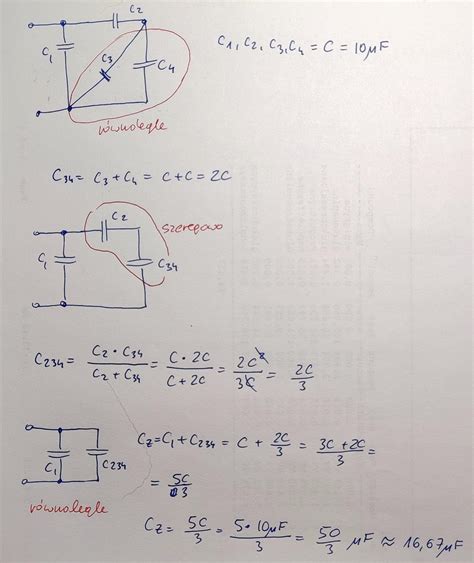 C₂
C₁
C₃
C₄
C₁, C₂, C₃, C₄ = C = 10μF
równolegle
C₃₄ = C₃ + C₄ = C + C = 2C
C₂
szeregowo
C₁
C₃₄
C₂₃₄ = (C₂ · C₃₄)/(C₂ + C₃₄) = (C · 2C)/(C + 2C) = 2C²/3C = 2C/3
C₁
C₂₃₄
równolegle
C_Z = C₁ + C₂₃₄ = C + 2C/3 = (3C + 2C)/3 =
= 5C/3
C_Z = 5C/3 = (5 · 10μF)/3 = 50/3 μF ≈ 16,67μF